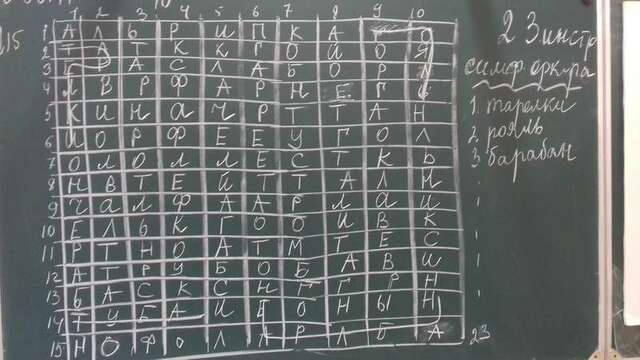 1 2 3 4 5 6 7 8 9 10
1 А Л Ь Р И П К А
2 Т А Т К К Г О Й О Я
3 Б Р А С Л А Б О Р Л
4 Л В Р Ф А Р Н Е Г И
5 К И Н А Ч Р Т Т А Н
6 И О Р Ф Е Е У Г О Л
7 О Л О Л Л Е С Т К Ь
8 Н В Т Е Й Т Т А Л Н
9 Ч А Л Ф А А Р Л А И
10 Е Л Ь К Г О О И В К
11 Р Т Н О А Т М Т Е С
12 А Т Р У Б О Б А В И
13 Б А С К С Н Г Г Р Н
14 Т У Б А И Е О Н Ы Н
15 Н О Ф О Л Л Р Л Б А
23 инстр
симф оркстра
1. тарелки
2. рояль
3. барабан
23